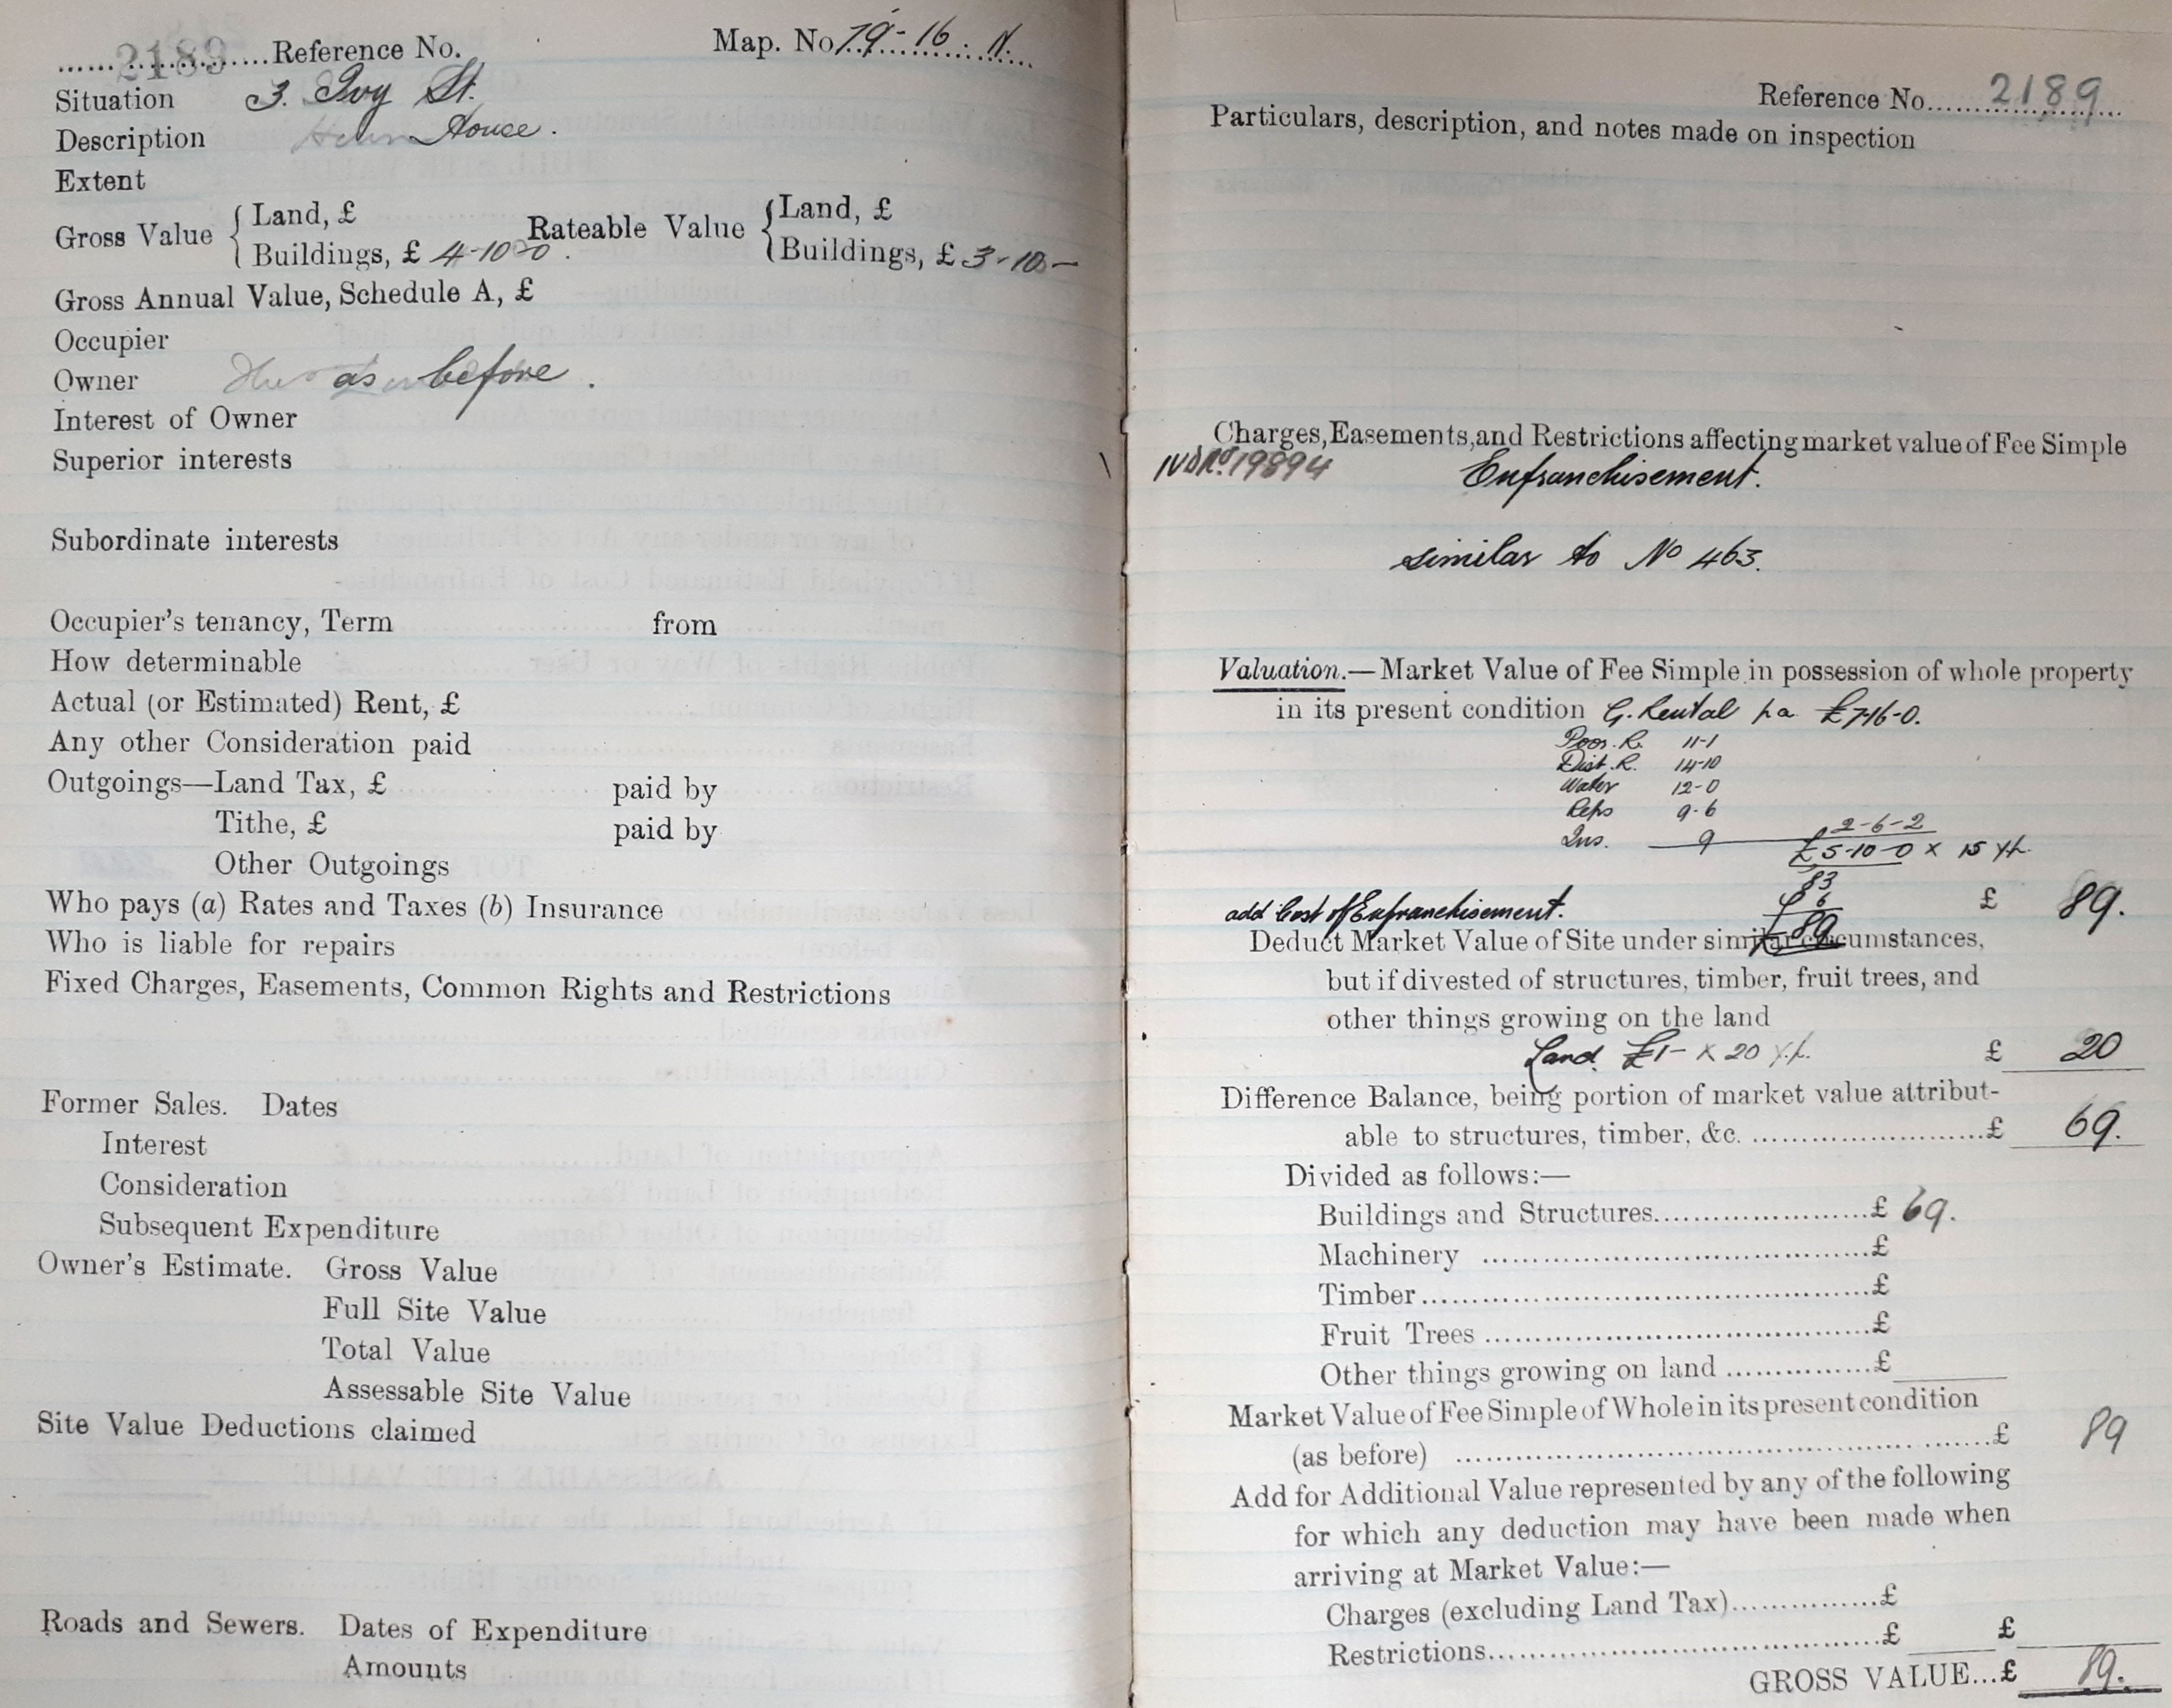 2189 Reference No. Map. No 79-16. N.
Situation 3. Ivy St.
Description House.
Extent
Gross Value { Land, £ Rateable Value { Land, £
Buildings, £ 4-10-0. Buildings, £ 3-10-
Gross Annual Value, Schedule A, £
Occupier
Owner as before.
Interest of Owner
Superior interests
Subordinate interests
Occupier's tenancy, Term from
How determinable
Actual (or Estimated) Rent, £
Any other Consideration paid
Outgoings—Land Tax, £ paid by
Tithe, £ paid by
Other Outgoings
Who pays (a) Rates and Taxes (b) Insurance
Who is liable for repairs
Fixed Charges, Easements, Common Rights and Restrictions
Former Sales. Dates
Interest
Consideration
Subsequent Expenditure
Owner's Estimate. Gross Value
Full Site Value
Total Value
Assessable Site Value
Site Value Deductions claimed
Roads and Sewers. Dates of Expenditure
Amounts
Reference No. 2189
Particulars, description, and notes made on inspection
Charges, Easements, and Restrictions affecting market value of Fee Simple
IVD No. 19894 Enfranchisement.
similar to No 463.
Valuation.—Market Value of Fee Simple in possession of whole property
in its present condition G. Rental pa £7-16-0.
Poor. R. 11-1
Dist. R. 14-10
Water 12-0
Reps 9-6
Ins. 9 2-6-2
£5-10-0 x 15 Y.P.
83
add Cost of Enfranchisement. 6 £ 89.
£89
Deduct Market Value of Site under similar circumstances,
but if divested of structures, timber, fruit trees, and
other things growing on the land
Land. £1- x 20 Y.P. £ 20
Difference Balance, being portion of market value attribut-
able to structures, timber, &c. £ 69.
Divided as follows:—
Buildings and Structures £ 69.
Machinery £
Timber £
Fruit Trees £
Other things growing on land £
Market Value of Fee Simple of Whole in its present condition
(as before) £ 89
Add for Additional Value represented by any of the following
for which any deduction may have been made when
arriving at Market Value:—
Charges (excluding Land Tax) £
Restrictions £ £
GROSS VALUE...£ 89.